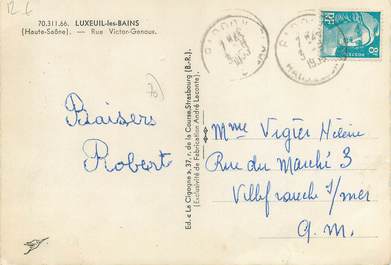 12-6
70.311.66. LUXEUIL-les-BAINS
(Haute-Saône). — Rue Victor-Genoux.
70
Baisers
Robert
Ed. « La Cigogne », 37, r. de la Course, Strasbourg (B.-R.)
(Exclusivité de Fabrication André Leconte)
Mme Vigier Hélène
Rue du Marché 3
Villefranche s/mer
A.M.